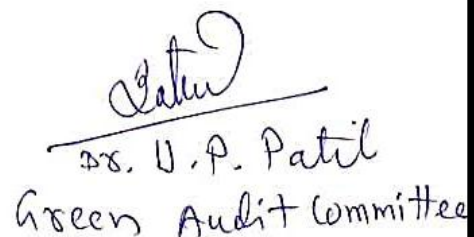 Dr. U.P. Patil
Green Audit Committee